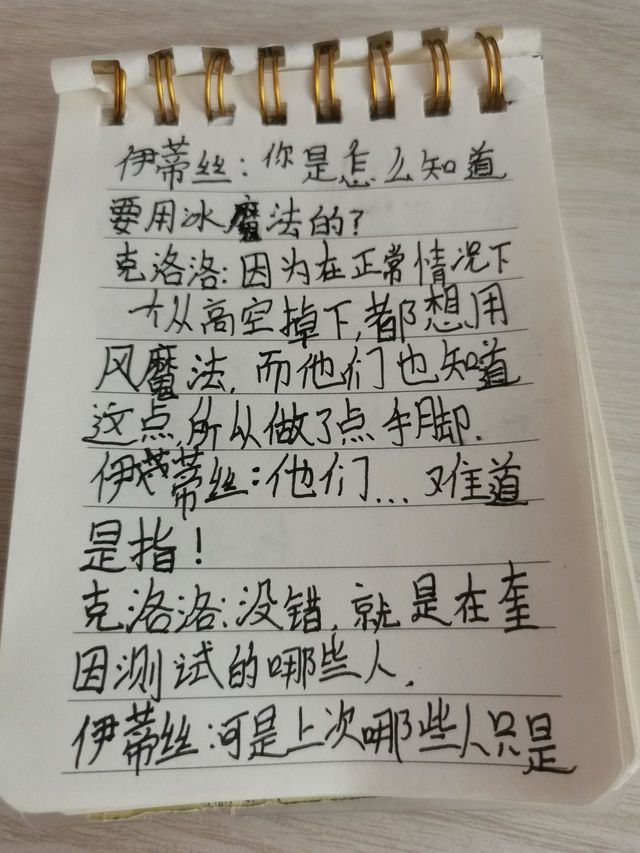 伊蒂丝:你是怎么知道
要用冰魔法的?
克洛洛:因为在正常情况下
从高空掉下,都想用
风魔法,而他们也知道
这点,所以做了点手脚.
伊蒂丝:他们...难道
是指!
克洛洛:没错,就是在奎
因测试的哪些人.
伊蒂丝:可是上次哪些人只是